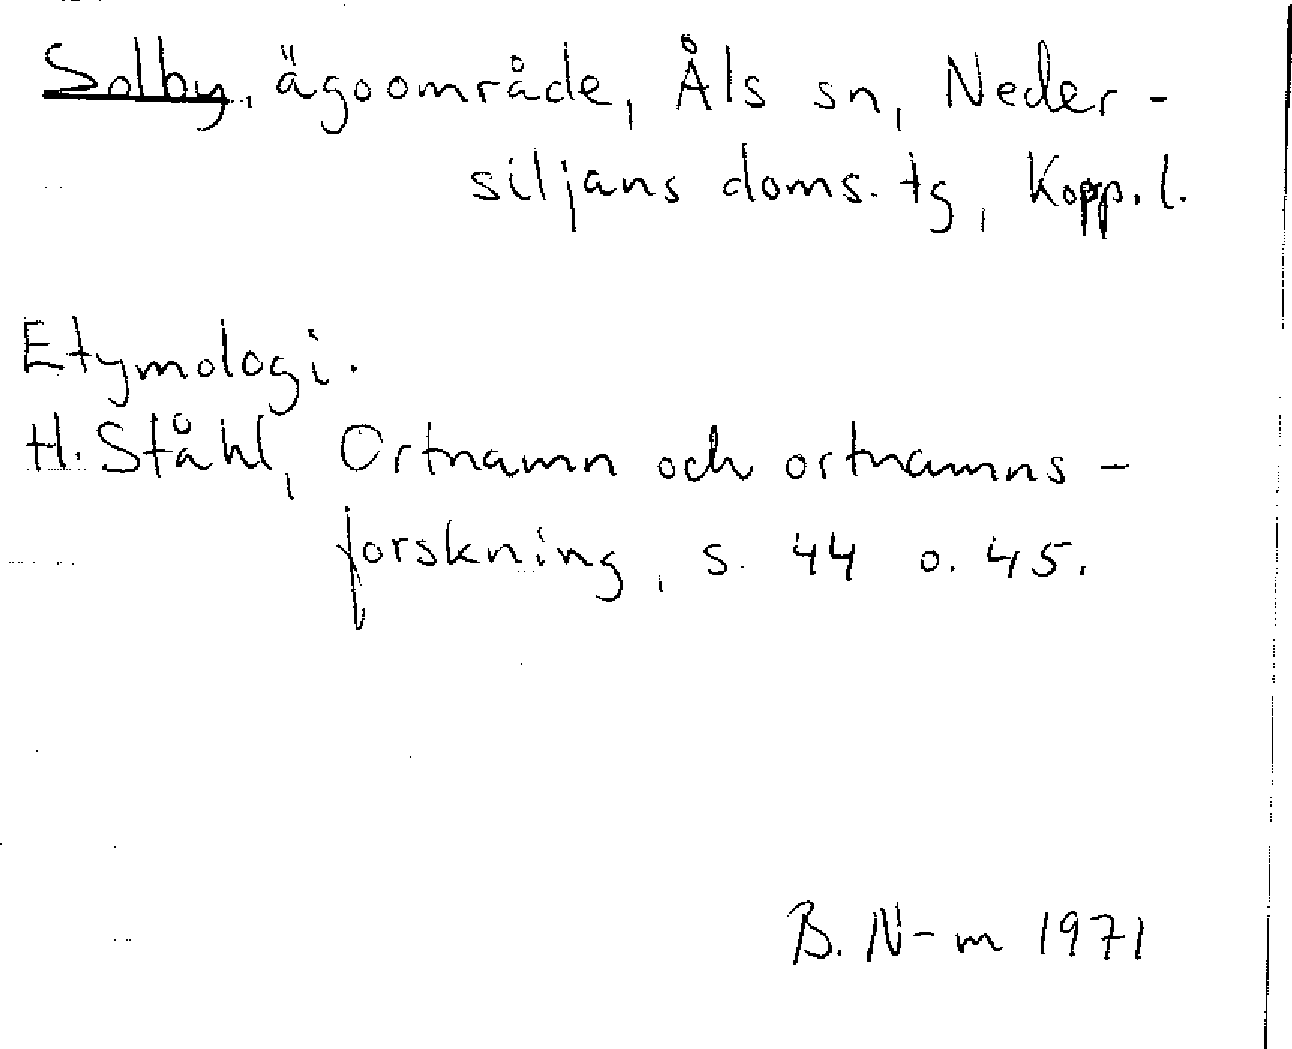 Solby, ägoområde, Åls sn, Neder-
siljans doms. tg, Kopp. l.
Etymologi.
H. Ståhl, Ortnamn och ortnamns-
forskning, s. 44 o. 45.
B. N-m 1971